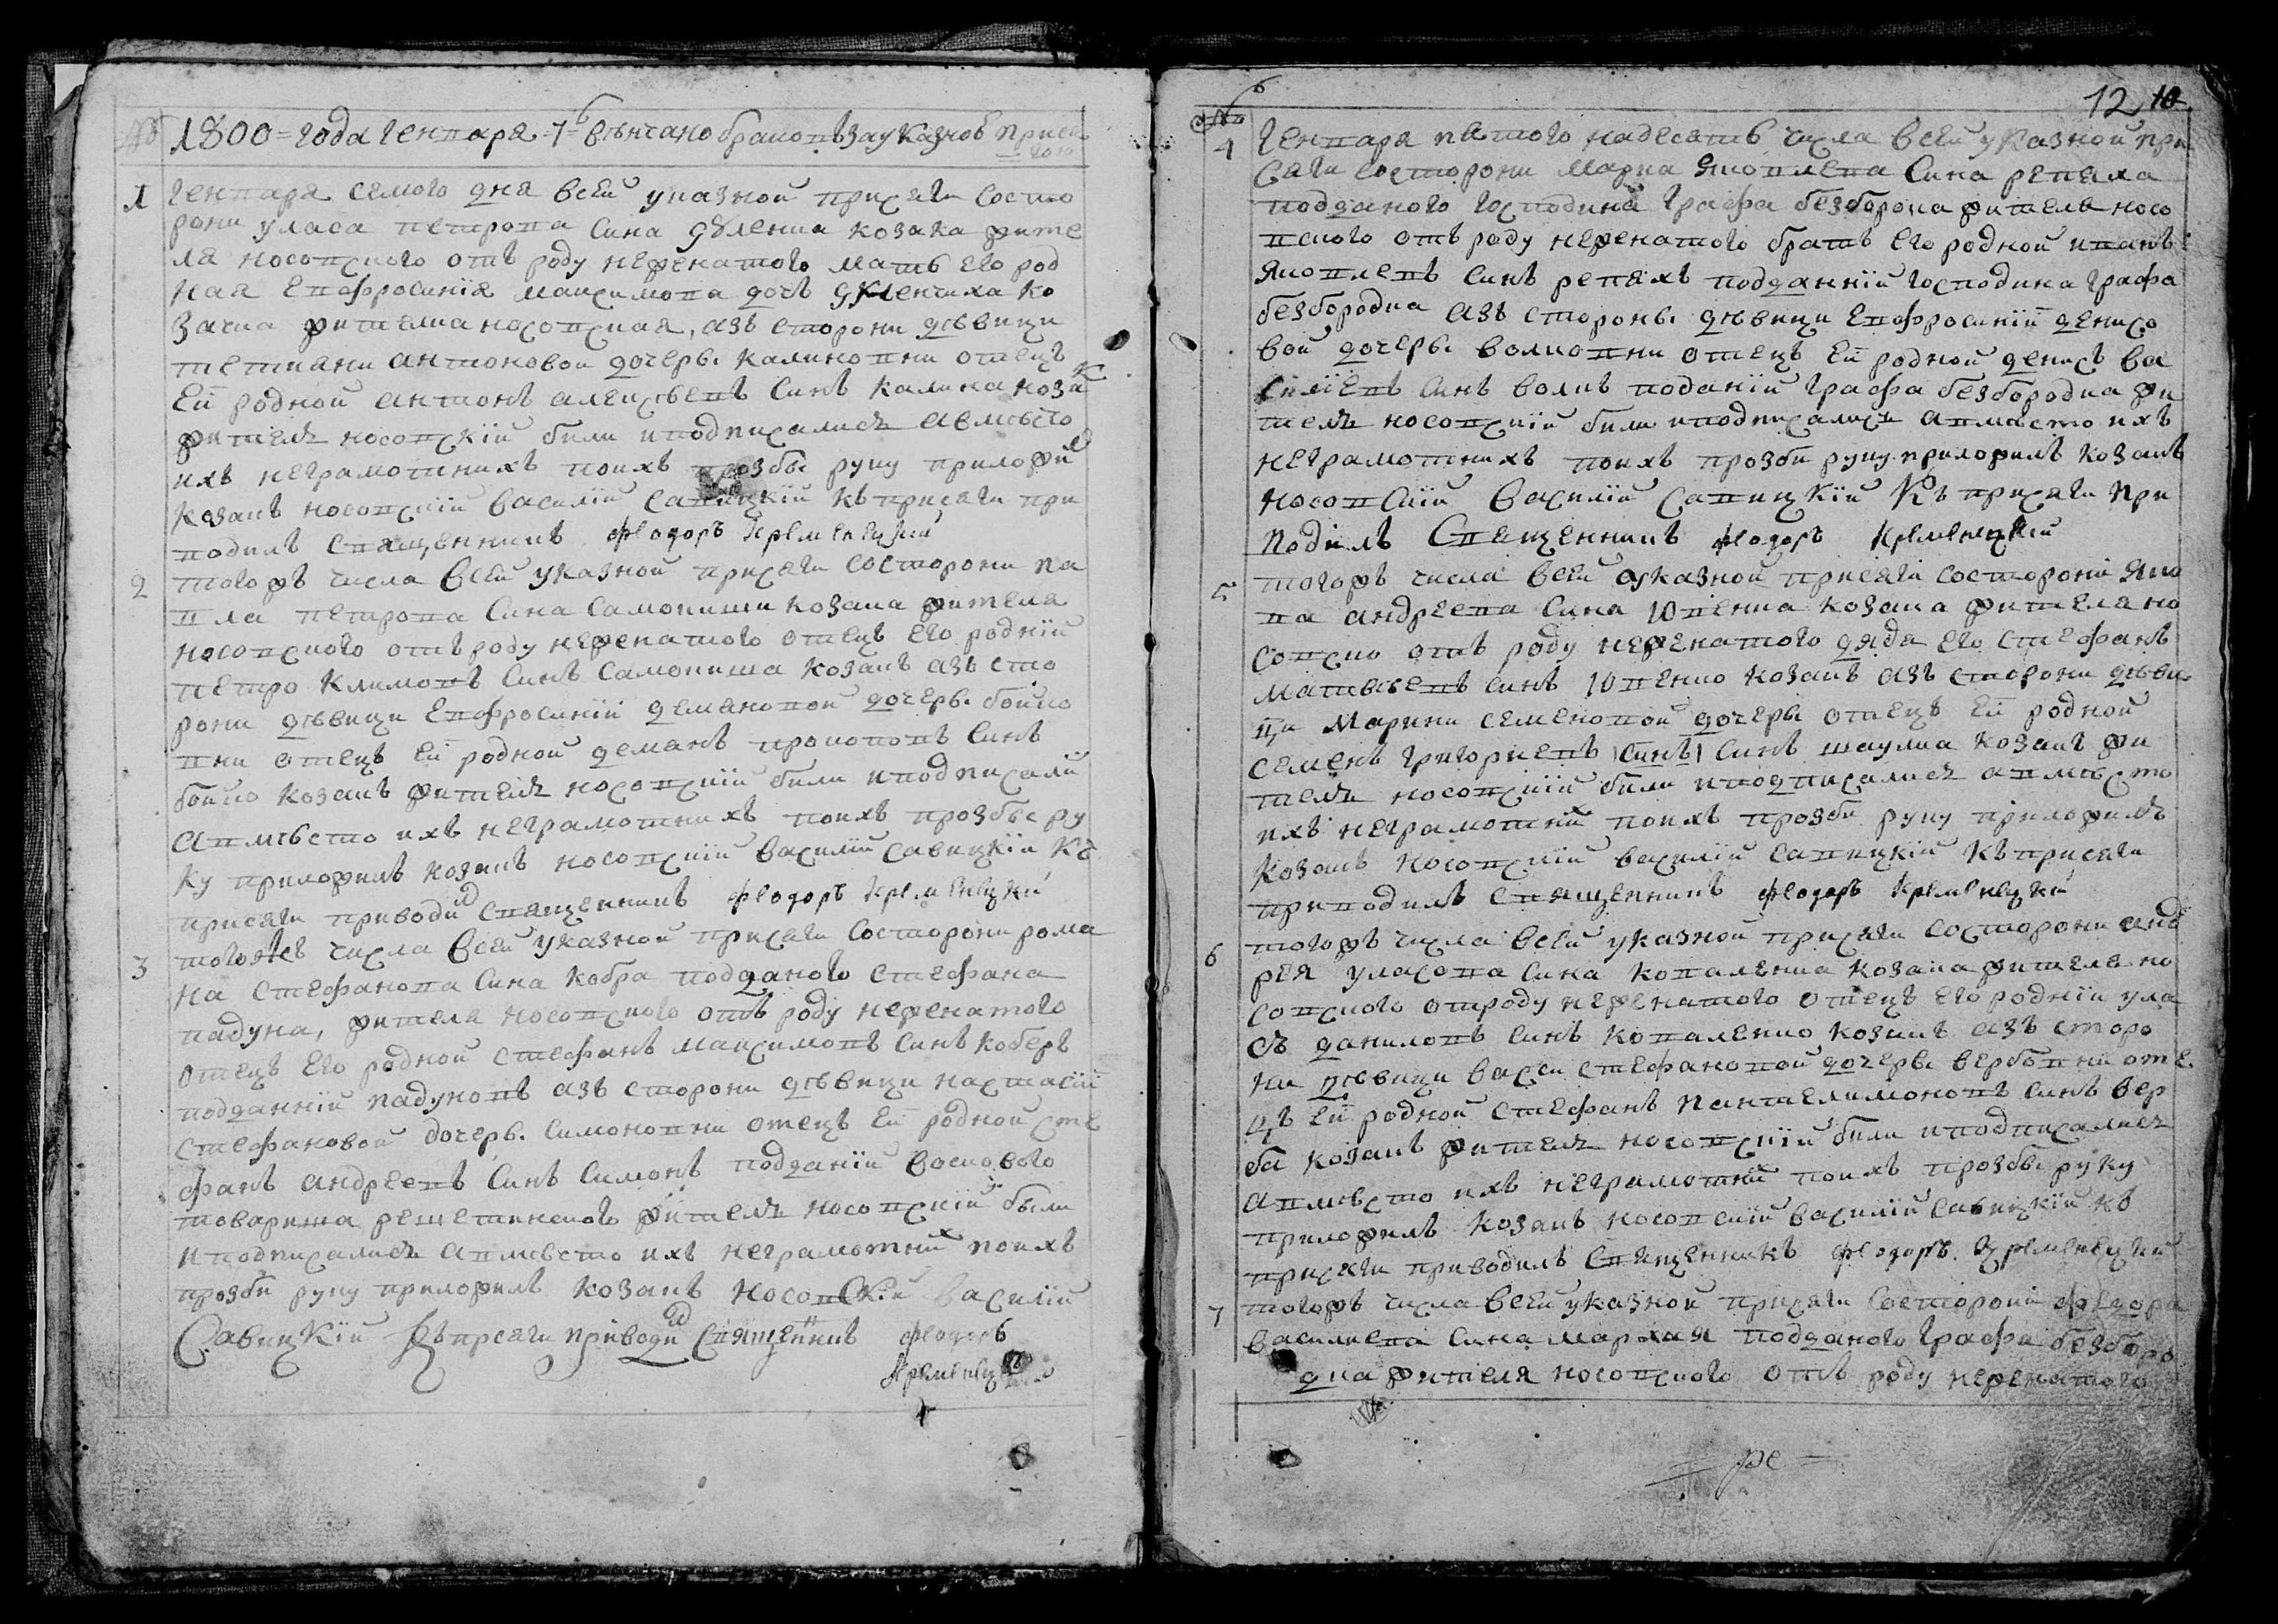 1800 = года генваря 7 вѣнчано браковъ за указною присе
гою
1 генваря семого дня всей указной присяги состо
рони уласа петрова сина дѣленка козака жите
ля носовского отъ роду неженатого мать его род
ная евфросинія максимова дочь дкленчиха ко
зачка жителка носовская, азъ сторони дѣвици
тетяни антоновой дочеръ калиновни отецъ
ей родной антонъ алексѣевъ синъ калина козак
житель носовскій били иподписались авмѣсто
ихъ неграмотнихъ поихъ прозбе руку приложил
козакъ носовскій василій савицкій къ присяги при
водилъ священникъ феодоръ кременецкій
2 тогожъ числа всей указной присяги состорони па
вла петрова сина самокиши козака жителя
носовского отъ роду неженатого отецъ его родній
петро климовъ синъ самокиша козакъ азъ сто
рони дѣвици евфросиніи демяновой дочеръ бойко
вни отецъ ей родной демянъ прокоповъ синъ
бойко козакъ житель носовскій били иподписали
авмѣсто ихъ неграмотнихъ поихъ прозбе ру
ку приложилъ козакъ носовскій василій савицкій къ
присяги приводил священникъ феодоръ кременецкій
3 тогожъ числа всей указной присяги состорони рома
на стефанова сина кобра подданого стефана
падуна, жителя носовского отъ роду неженатого
отецъ его родной стефанъ максимовъ синъ коберъ
подданній падуновъ азъ сторони дѣвици настасіи
стефановой дочеръ симоновни отецъ ей родной сте
фанъ андреевъ синъ симонъ подданій воскового
товариша решетинского житель носовскій были
иподписались авмѣсто ихъ неграмотних поихъ
прозби руку приложилъ козакъ носовскій василій
Савицкій къ присяги приводил священникъ феодоръ
кременецкій
12 10
4 генваря пятого надесять числа всей указной при
сяги состорони марка яковлева сина репяха
подданого господина графа безборока жителя носо
вского отъ роду неженатого братъ его родной иванъ
яковлевъ синъ репяхъ подданній господина графа
безбородка азъ стороны дѣвици евфросиніи денисо
вой дочеръ волковни отецъ ей родной денисъ ва
силіевъ синъ волкъ поданій графа безбородка жи
тель носовскій били иподписались авмѣсто ихъ
неграмотнихъ поихъ прозби руку приложилъ козакъ
носовскій василій савицкій Къ присяги при
водилъ Священникъ феодоръ кременецкій
5 тогожъ числа всей указной присяги состорони яко
ва андреева сина ювенка козака жителя но
совско отъ роду неженатого дядя его стефанъ
матвѣевъ синъ ювенко козакъ азъ сторони дѣви
ци марини семеновой дочеръ отецъ ей родной
семенъ григориевъ синъ синъ шаулка козакъ жи
тель носовскій били иподписались авмѣсто
ихъ неграмотних поихъ прозби руку приложилъ
козакъ носовскій василій савицкій къ присяги
приводилъ священникъ феодоръ кременецкій
6 тогожъ числа всей указной присяги состорони анд
рея уласова сина коваленка козака жителя но
совского отроду неженатого отецъ его родній ула
съ даниловъ синъ коваленко козакъ азъ сторо
ни дѣвици васси стефановой дочеръ вербовни оте
цъ ей родной стефанъ пантелимоновъ синъ вер
ба козакъ житель носовскій били иподписались
авмѣсто ихъ неграмотній поихъ прозбе руку
приложилъ козакъ носовскій василій савицкій къ
присяги приводилъ священникъ феодоръ кременецкій
7 тогожъ числа всей указной присяги состороні федора
василиева сина мархая подданого графа безборо
дка жителя носовского отъ роду неженатого